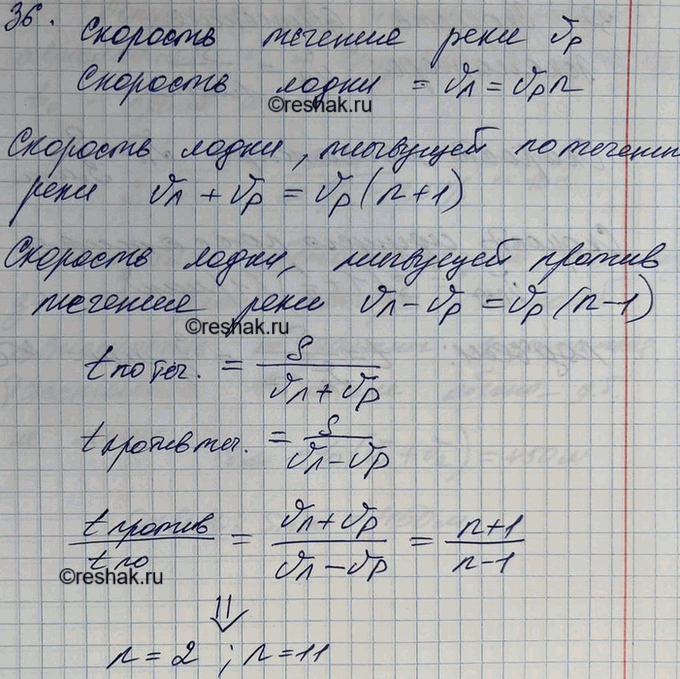 36. Скорость течение реки υр
Скорость лодки = υл = υр n
©reshak.ru
Скорость лодки, плывущей по течени
реки υл + υр = υр (n+1)
Скорость лодки, плывущей против
течение реки υл − υр = υр (n−1)
©reshak.ru
t по теч. = S / (υл + υр)
t против теч. = S / (υл − υр)
t против / t по = (υл + υр) / (υл − υр) = (n+1) / (n−1)
©reshak.ru
⇓
n = 2 ; n = 11